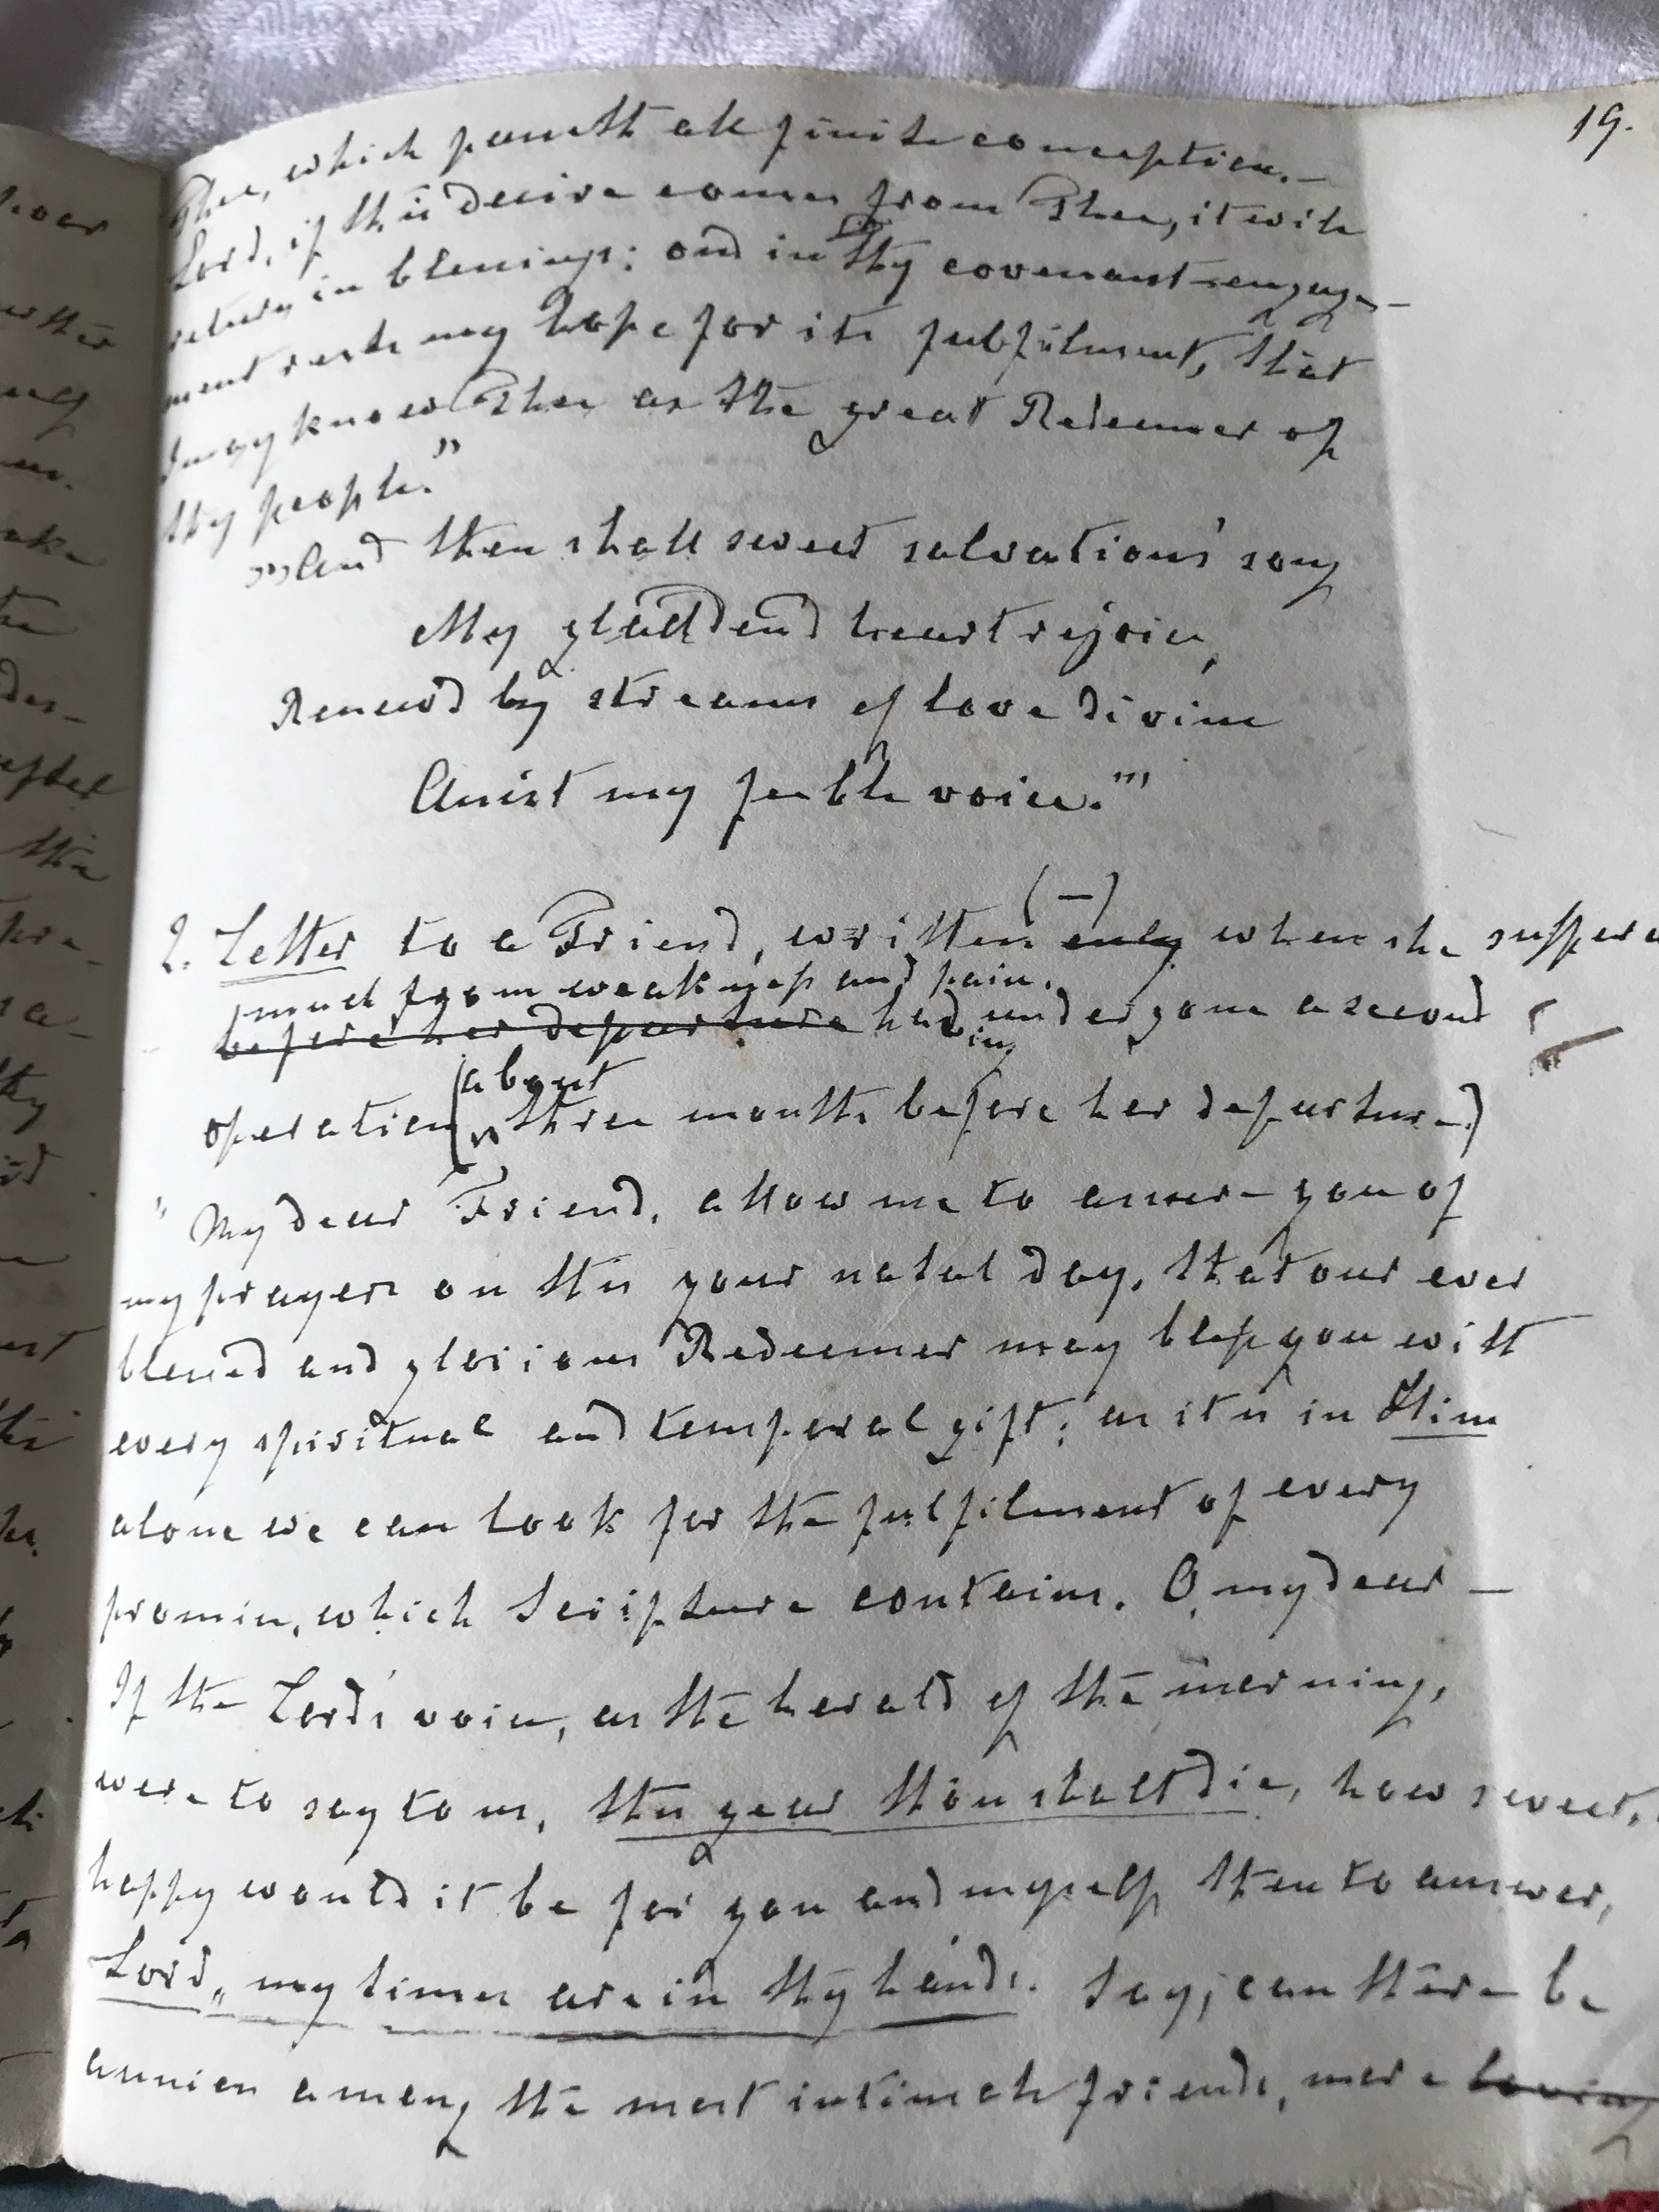 19.
Thee, which passeth all finite conception.—
Lord, if this desire comes from Thee, it will
return in blessings: and in Thy covenant-engage-
ment rests my hope for its fulfilment, that
I may know Thee as the great Redeemer of
thy people."
"And then shall sweet salvations' song
My gladdend heart rejoice,
Renewd by streams of love divine
Assist my feeble voice."'
2. Letter to a Friend, written (—) only when she suffered
much from weakness and pain.
before her departure had undergone a second
about
operation (three months before her departure.)
"My dear Friend, allow me to assure you of
my prayers on this your natal day, that our ever
blessed and glorious Redeemer may bless you with
every spiritual and temporal gift; as it is in Him
alone we can look for the fulfilment of every
promise, which Scripture contains. O, my dear —
If the Lord's voice, as the herald of the morning,
were to say to us, this year thou shalt die, how sweet,
happy would it be for you and myself then to answer,
Lord, my times are in thy hands. Say, can there be
a union among the most intimate friends, more loving